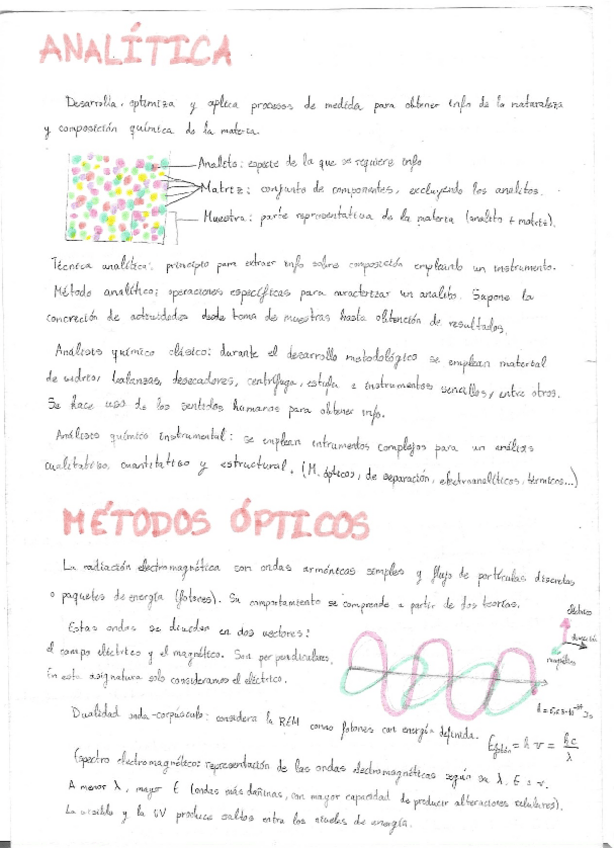 ANALÍTICA
Desarrolla, optimiza y aplica procesos de medida para obtener info de la naturaleza
y composición química de la materia.
Analito: especie de la que se requiere info
Matriz: conjunto de componentes, excluyendo los analitos.
Muestra: parte representativa de la materia (analito + matriz).
Técnica analítica: principio para extraer info sobre composición empleando un instrumento.
Método analítico: operaciones específicas para caracterizar un analito. Supone la
concreción de actividades desde toma de muestras hasta obtención de resultados.
Análisis químico clásico: durante el desarrollo metodológico se emplean material
de vidrio, balanzas, desecadores, centrífuga, estufa e instrumentos sencillos, entre otros.
Se hace uso de los sentidos humanos para obtener info.
Análisis químico instrumental: se emplean intrumentos complejos para un análisis
cualitativo, cuantitativo y estructural. (M. ópticos, de separación, electroanalíticos, térmicos...)
MÉTODOS ÓPTICOS
La radiación electromagnética son ondas armónicas simples y flujo de partículas discretas
o paquetes de energía (fotones). Su comportamiento se comprende a partir de dos teorías.
Estas ondas se dividen en dos vectores:
el campo eléctrico y el magnético. Son perpendiculares.
En esta asignatura solo consideramos el eléctrico.
eléctrico
dirección
magnético
h = 6,63·10⁻³⁴ Js
Dualidad onda-corpúsculo: considera la REM como fotones con energía definida. E fotón = h ν = hc/λ
Espectro electromagnético: representación de las ondas electromagnéticas según su λ, E o ν.
A menor λ, mayor E (ondas más dañinas, con mayor capacidad de producir alteraciones celulares).
La visible y la UV produce saltos entre los niveles de energía.